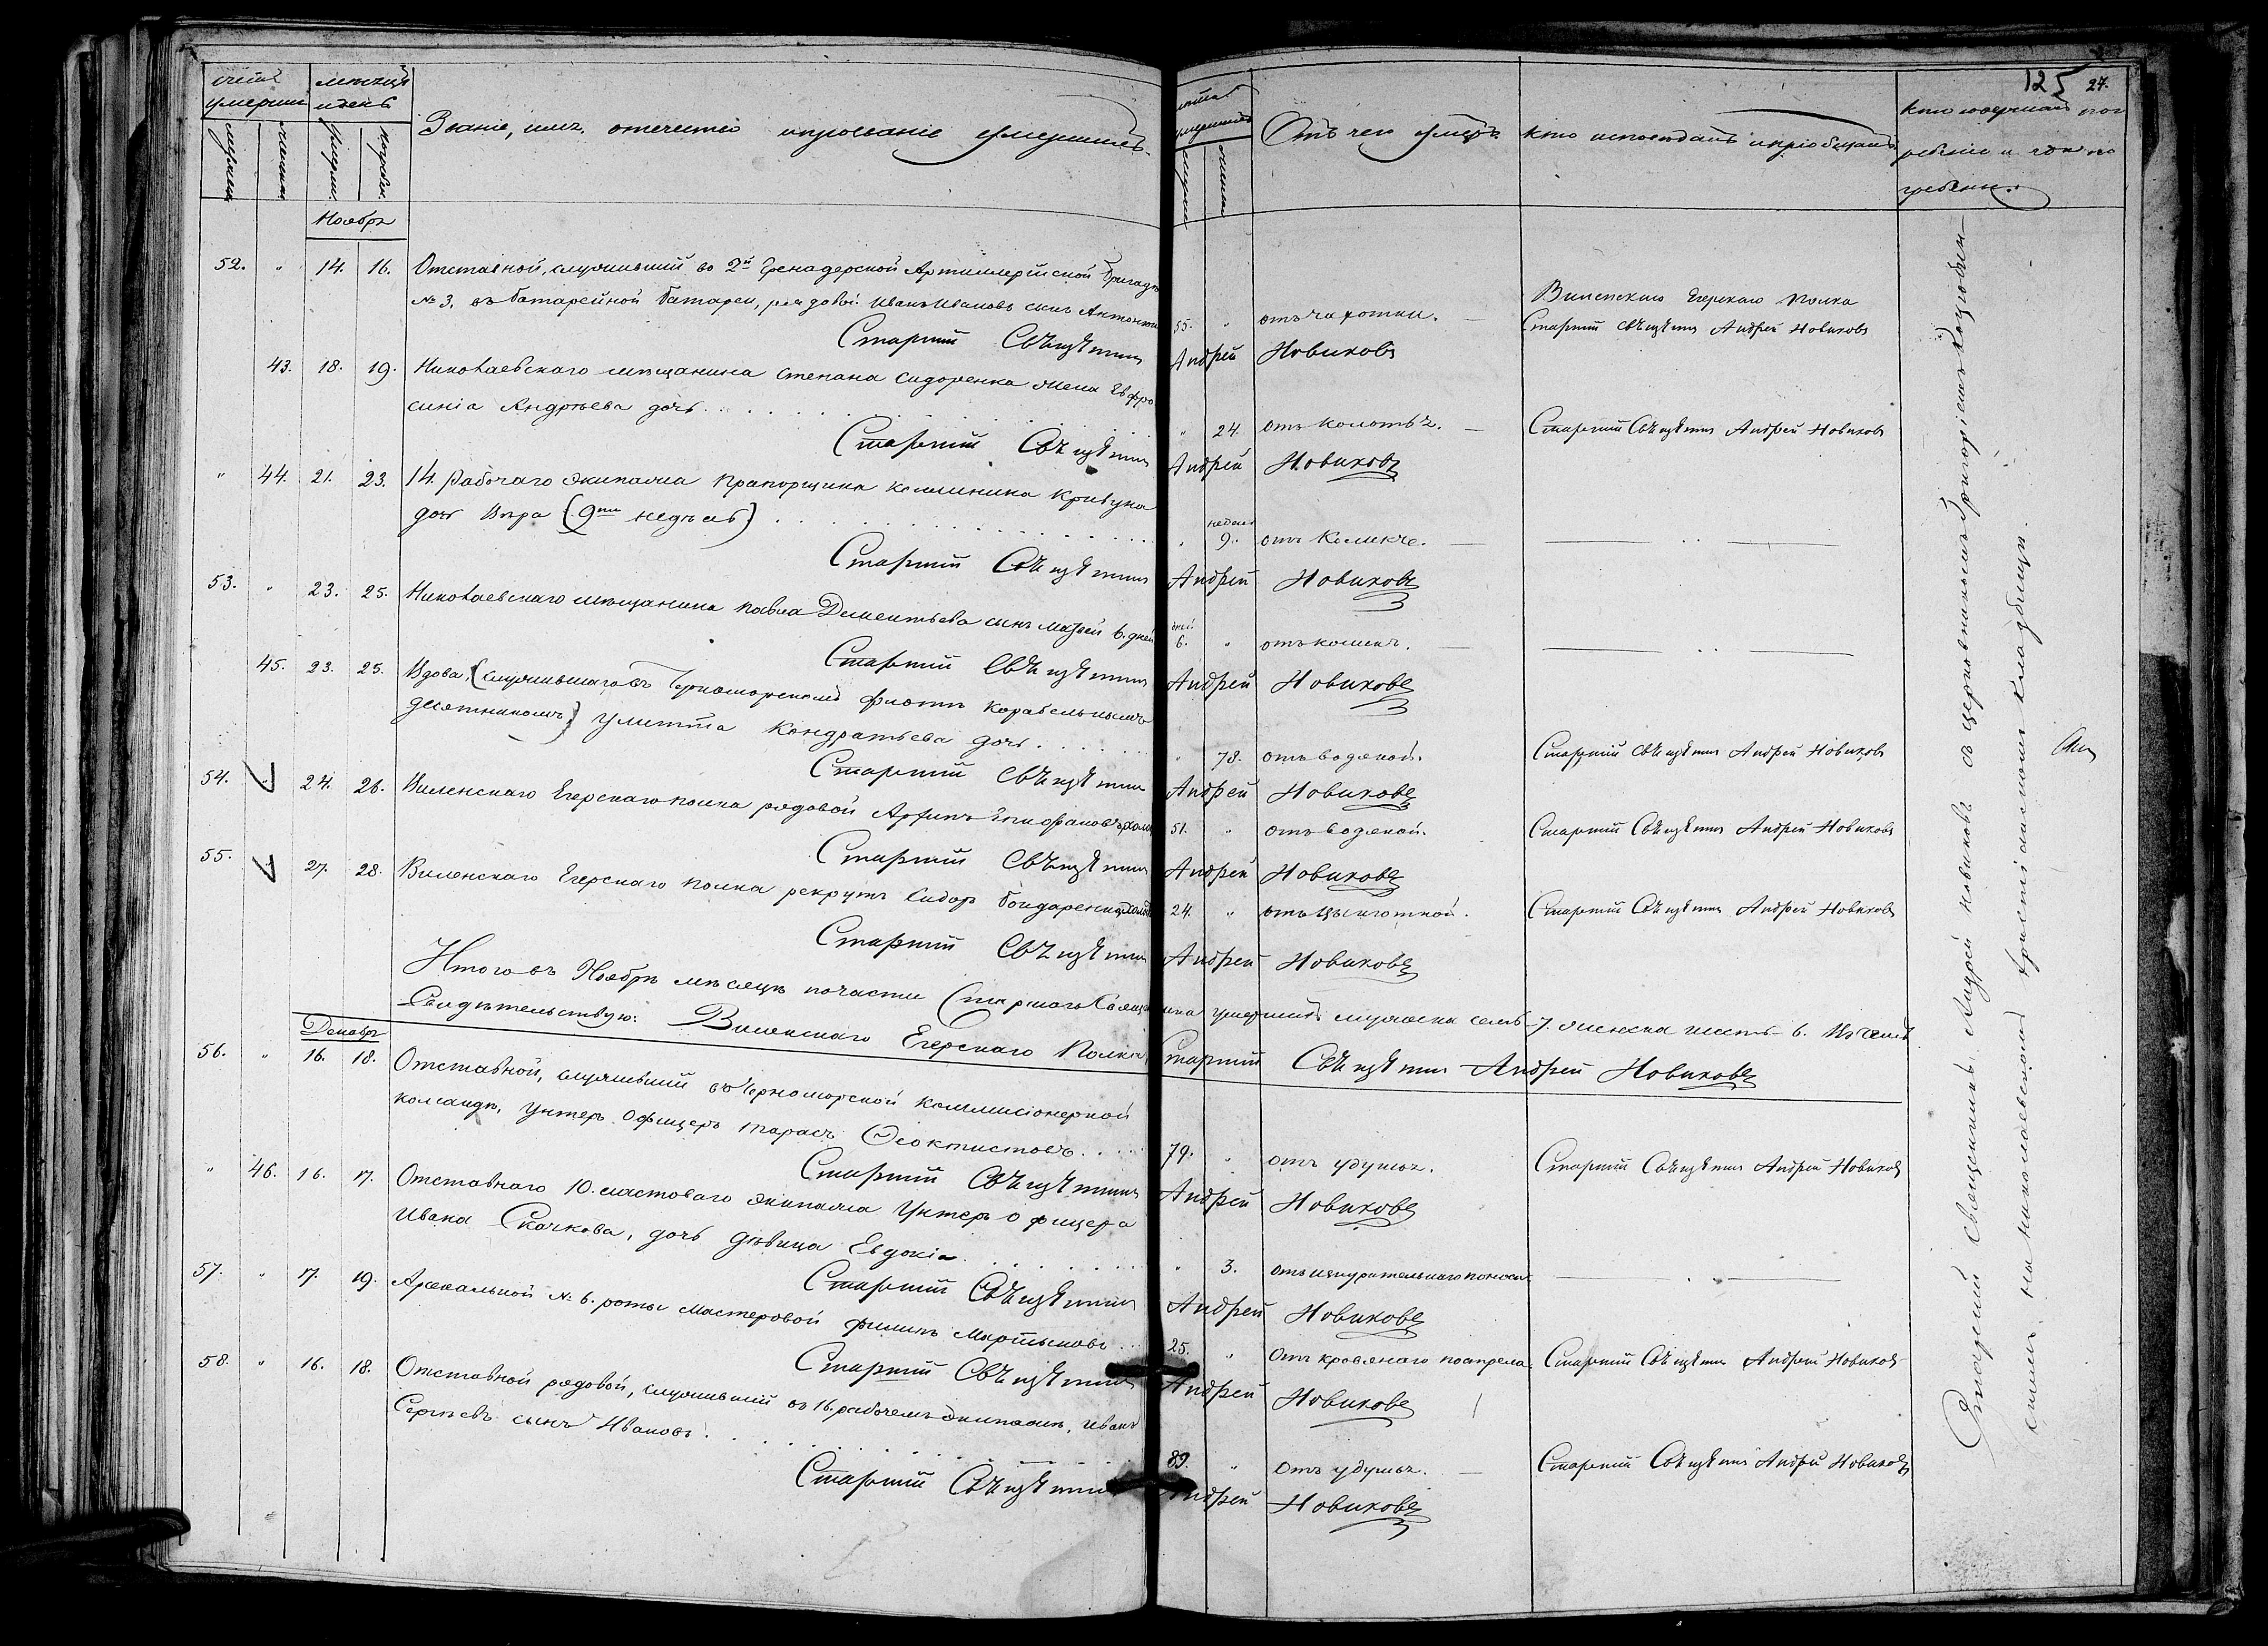 125 27.
Счетъ умершихъ
мѣсяцъ и день
Званіе, имя, отечество и прозваніе умершихъ.
Лѣта умершихъ
Отъ чего умеръ
Кто исповѣдалъ и пріобщалъ
Кто совершалъ погребеніе и гдѣ погребены.
Ноябрь
52. „ 14. 16. Отставной, служившій во 2й Гренадерской Артиллерійской Бригадѣ
№ 3. въ батарейной батареи, рядовой Иванъ Ивановъ сынъ
55. „ отъ чахотки. —
Виленскаго Егерскаго Полка
Старшій Священникъ Андрей Новиковъ
Старшій Священникъ Андрей Новиковъ
43. 18. 19. Николаевскаго мѣщанина Степана Сидоренка жена Евфро
синіа Андрѣева дочь . . . . .
„ 24. отъ колотья. — Старшій Священникъ Андрей Новиковъ
Старшій Священникъ Андрей Новиковъ
„ 44. 21. 23. 14. Рабочаго Экипажа Прапорщика Кривуна
дочь Вѣра (9ти недѣль) . . . . .
„ недѣль 9. отъ коликъ. —
Старшій Священникъ Андрей Новиковъ
53. „ 23. 25. Николаевскаго мѣщанина Павла Дементьева сынъ 6. дней
дней 6. „ отъ коликъ. —
Старшій Священникъ Андрей Новиковъ
45. 23. 25. Вдова, (служившаго въ Черноморскомъ флотѣ корабельнымъ
десятникомъ) Улитта Кондратьева дочь. . . . .
„ 78. отъ водяной. Старшій Священникъ Андрей Новиковъ
Старшій Священникъ Андрей Новиковъ
54. „ 24. 26. Виленскаго Егерскаго полка рядовой Архипъ Епифановъ
51. „ отъ водяной. Старшій Священникъ Андрей Новиковъ
Старшій Священникъ Андрей Новиковъ
55. „ 27. 28. Виленскаго Егерскаго полка рекрутъ Сидоръ Бондаренко
24. „ отъ цынготной. Старшій Священникъ Андрей Новиковъ
Старшій Священникъ Андрей Новиковъ
Итого въ Ноябрѣ мѣсяцѣ по части Старшаго Священника умершихъ мужеска семь—7. женска шесть—6.
Свидѣтельствую: Виленскаго Егерскаго Полка Старшій Священникъ Андрей Новиковъ
Декабрь
56. „ 16. 18. Отставной, служившій въ Черноморской Коммисіонерной
командѣ, Унтеръ Офицеръ Тарасъ Ѳеоктистовъ. . . .
79. „ отъ удушья. Старшій Священникъ Андрей Новиковъ
Старшій Священникъ Андрей Новиковъ
„ 46. 16. 17. Отставнаго 10. ластоваго Экипажа Унтеръ офицера
Ивана Скачкова, дочь дѣвица Евдокія . . . . .
„ 3. отъ изнурительнаго поноса.
Старшій Священникъ Андрей Новиковъ
57. „ 17. 19. Арсенальной № 6. роты Мастеровой Филипъ Мартыновъ . . .
25. „ Отъ кровянаго пострела. Старшій Священникъ Андрей Новиковъ
Старшій Священникъ Андрей Новиковъ
58. „ 16. 18. Отставной рядовой, служившій въ 16. рабочемъ Экипажѣ, Иванъ
Сергѣевъ сынъ Ивановъ. . . . .
89. „ Отъ удушья. — Старшій Священникъ Андрей Новиковъ
Старшій Священникъ Андрей Новиковъ
Старшій Священникъ Андрей Новиковъ съ церковникомъ Григоріемъ
на Николаевскомъ христіанскомъ кладбищѣ.